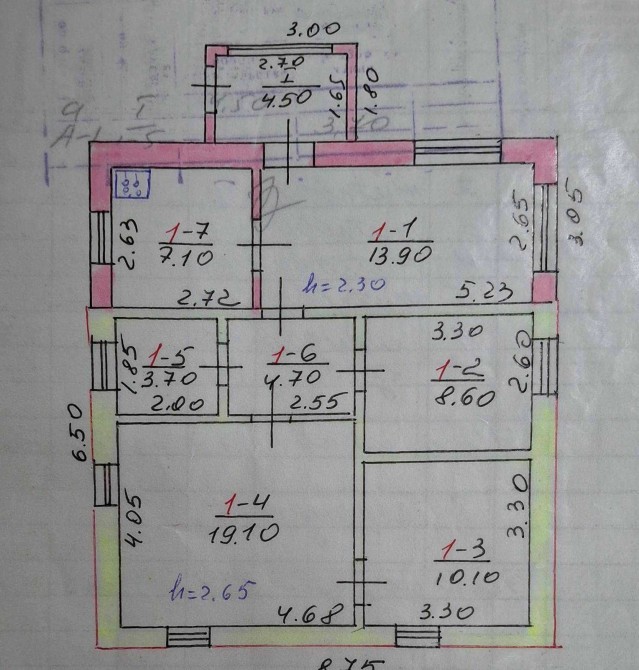 3.00
2.70
I
4.50
1.65
1.80
1-7
7.10
2.63
2.72
1-1
13.90
2.65
3.05
h=2.30
5.23
1-5
3.70
1.85
2.00
1-6
4.70
2.55
3.30
1-2
8.60
2.60
6.50
1-4
19.10
4.05
h=2.65
4.68
1-3
10.10
3.30
3.30
8.75